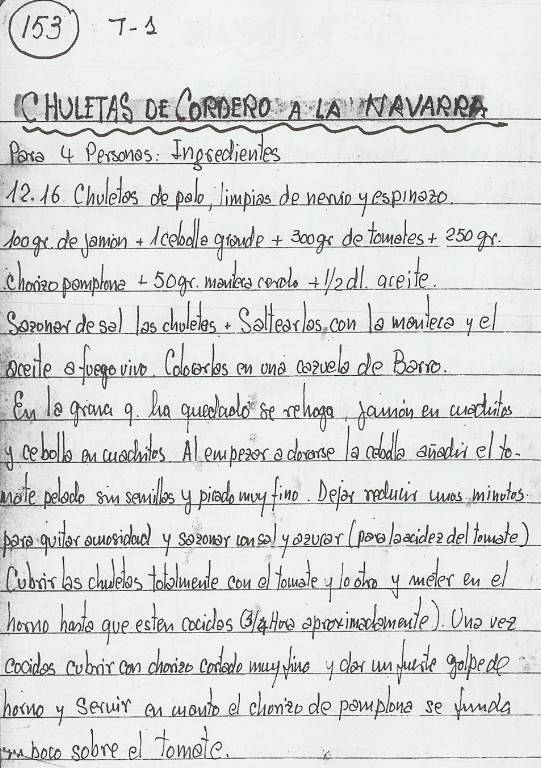 153 T-1
CHULETAS DE CORDERO A LA NAVARRA
Para 4 Personas: Ingredientes
12.16 Chuletas de palo, limpias de nervio y espinazo.
100gr. de jamón + 1 cebolla grande + 300gr de tomates + 250 gr.
Chorizo pamplona + 50gr. manteca cerdo + 1/2 dl. aceite.
Sazonar de sal las chuletas + Saltearlas con la manteca y el
aceite a fuego vivo. Colocarlas en una cazuela de Barro.
En la grasa q. ha quedado se rehoga, jamón en cuadritos
y cebolla en cuadritos Al empezar a dorarse la cebolla añadir el to-
mate pelado sin semillas y picado muy fino. Dejar reducir unos minutos
para quitar acuosidad y sazonar con sal y azucar (para la acidez del tomate)
Cubrir las chuletas totalmente con el tomate y lo otro y meter en el
horno hasta que esten cocidas (3/4 Hora aproximadamente). Una vez
cocidas cubrir con chorizo cortado muy fino y dar un fuerte golpe de
horno y servir en cuanto el chorizo de pamplona se funda
un poco sobre el tomate.